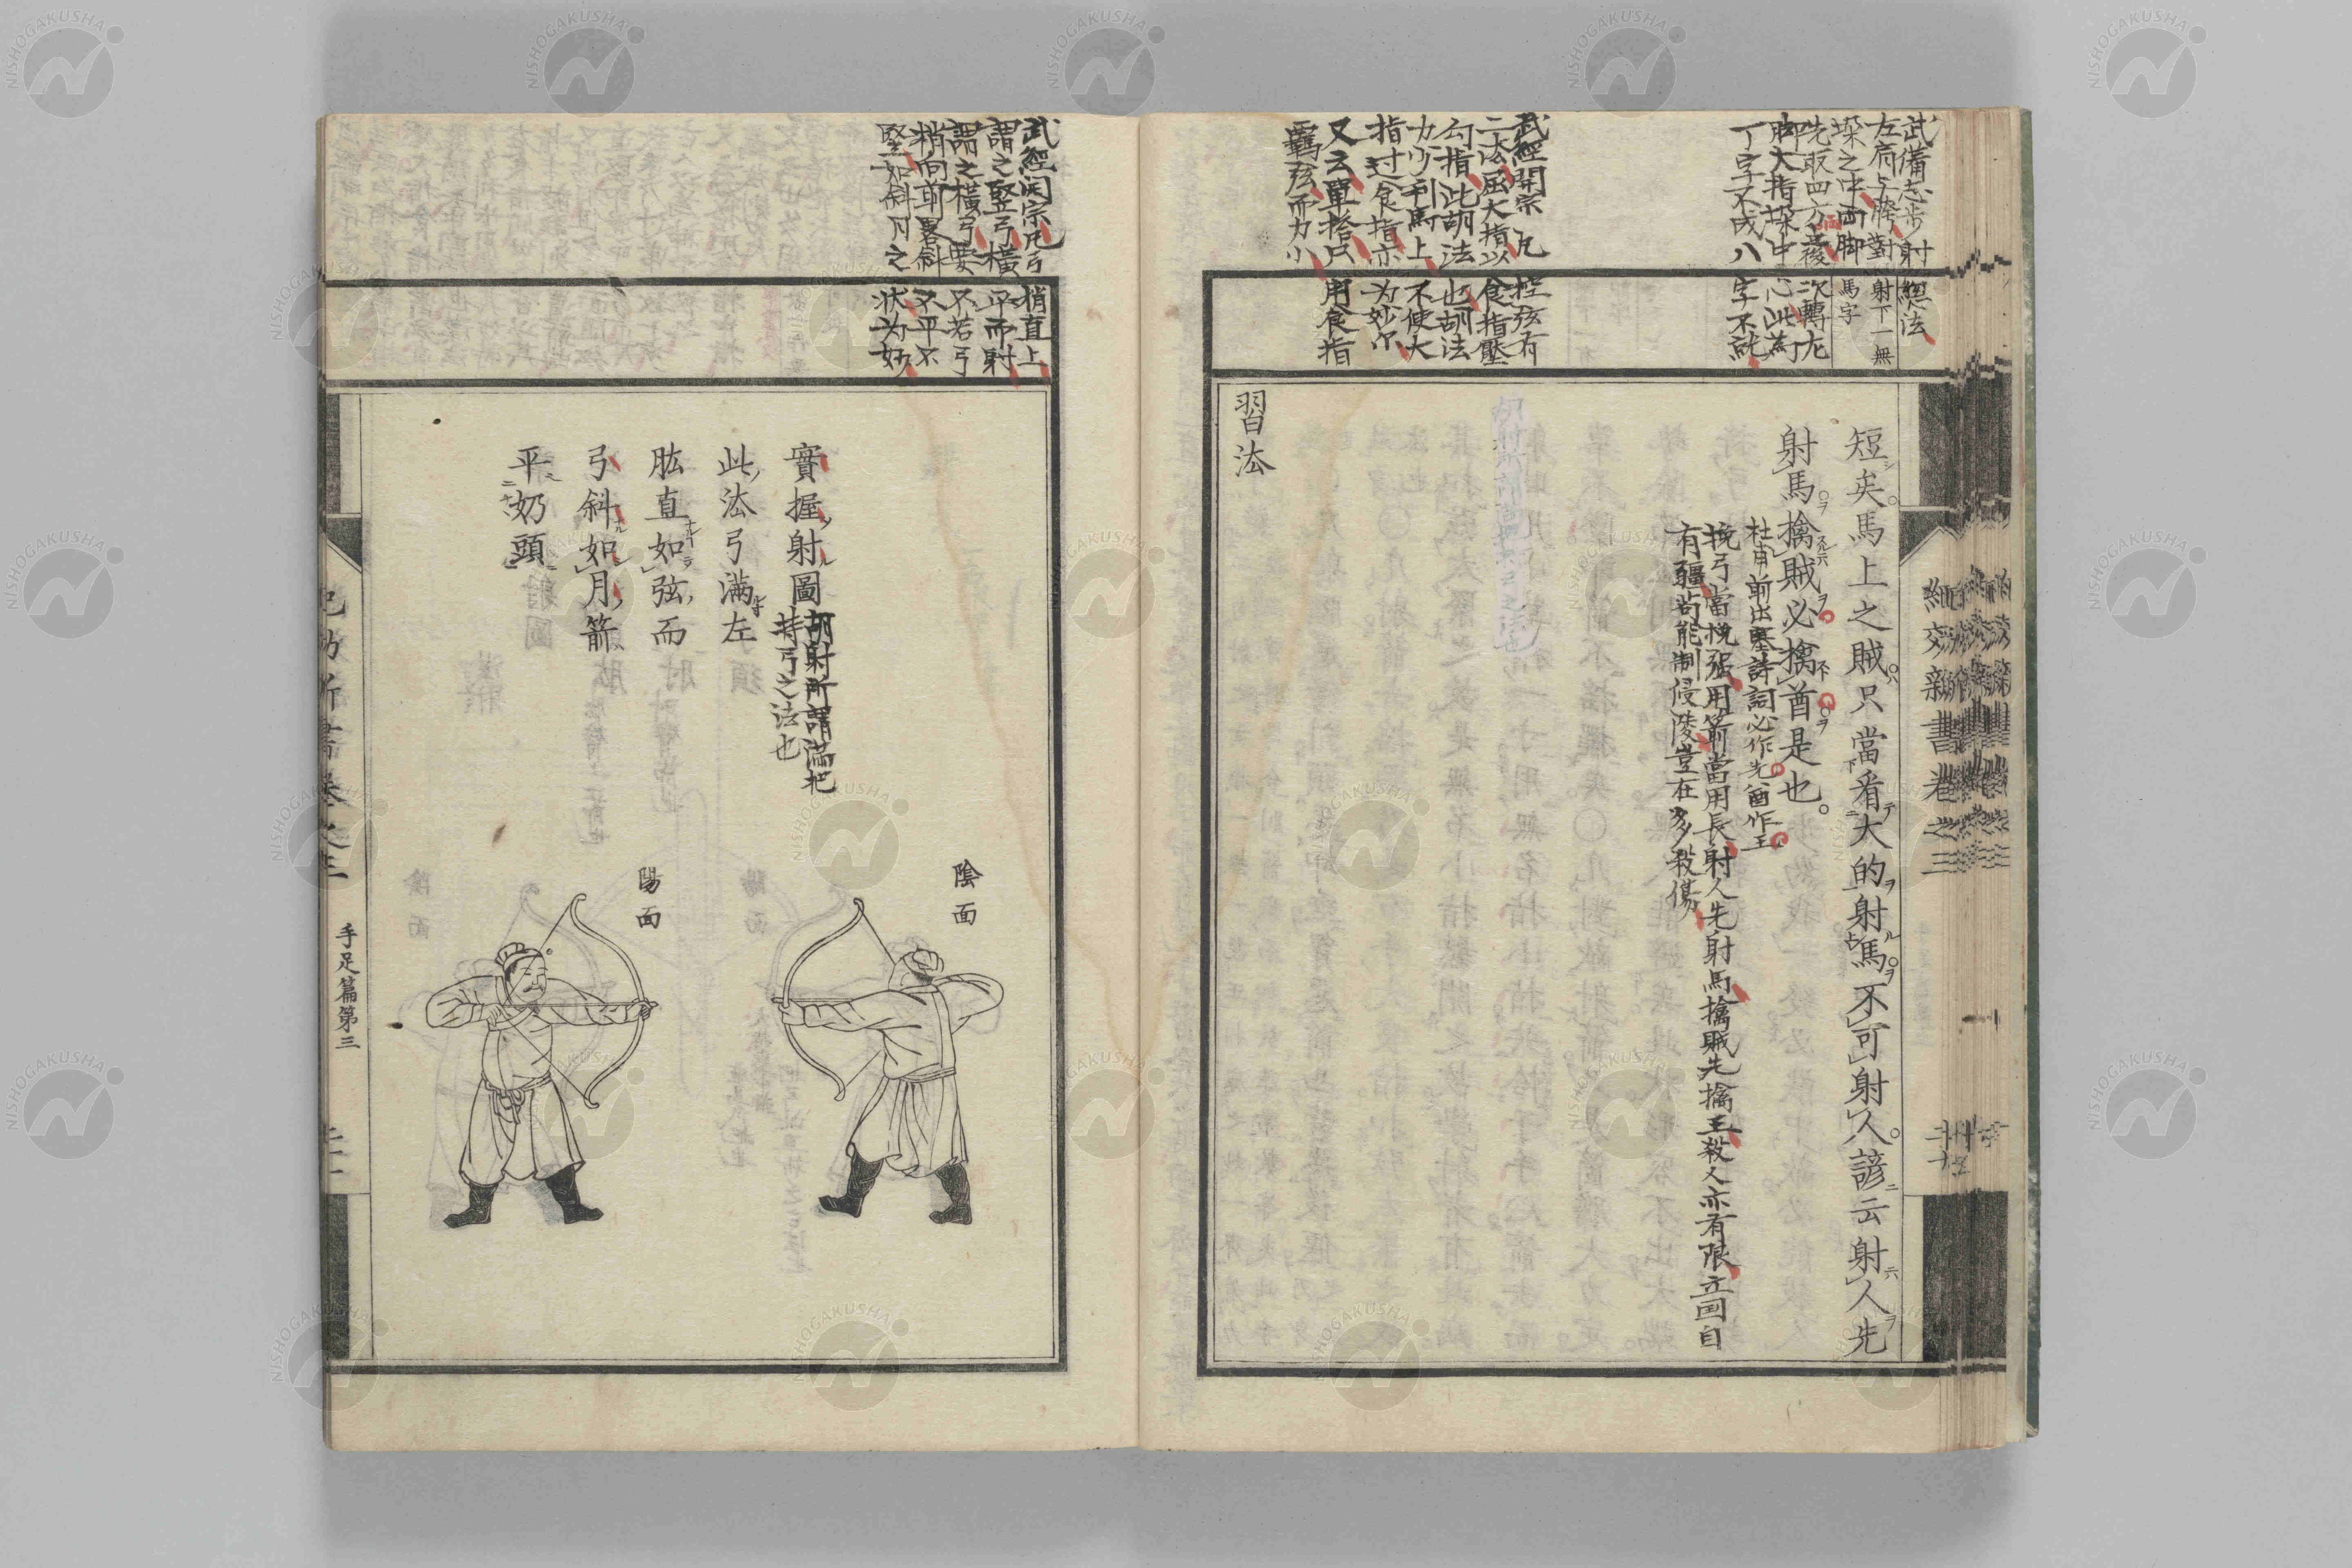 武備志步射總法
左肩与胯對
射下一無
馬字
垜之中両脚
先取四方立後次轉左
脚大指垜中心此為
丁字不成八字不就
武經開宗凡控弦有
二法屈大指以食指壓
勾指此胡法也胡法
力少利馬上不使大
指过食指亦为妙尓
又云單搭只用食指
羈弦而力小
短矣馬上之賊只當看大的射馬不可射人諺云射人先
射馬擒賊必擒酋是也
杜甫前出塞詩詞必作先酋作王
挽弓當挽强用箭當用長射人先射馬擒賊先擒王殺人亦有限立国自
有疆苟能制侵陵豈在多殺傷
習法
紀效新書卷之三
武經開宗凡弓梢直上
謂之竪弓橫平而射
謂之橫弓要不若弓
梢向前畧斜不平不
竪如斜月之状为妙
實握射圖
胡射所謂滿把
持弓之法也
此法弓滿左
肱直如弦而
弓斜如月箭
平奶頭
陰面
陽面
手足篇第三
NISHOGAKUSHA